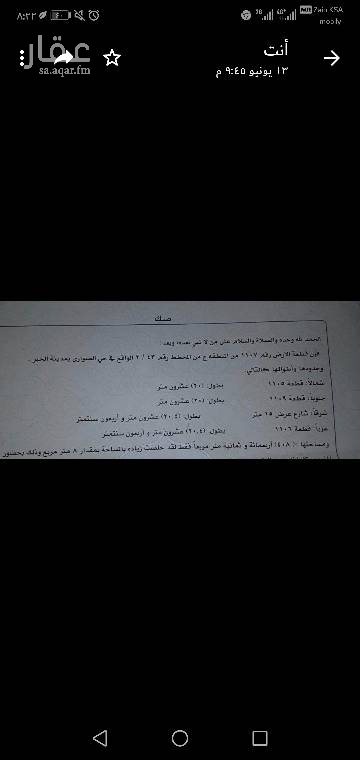 ٨:٢٢
Zain KSA
mobily
عقار
sa.aqar.fm
أنت
١٣ يونيو ٩:٤٥ م
صك
الحمد لله وحده والصلاة والسلام على من لا نبي بعده وبعد:
فإن قطعة الأرض رقم ١١٠٧ من المنطقة ع من المخطط رقم ٤٣ / ٢ الواقع في حي الصواري بمدينة الخبر.
وحدودها وأطوالها كالتالي
شمالا: قطعة ١١٠٥ بطول: (٢٠) عشرون متر
جنوبا: قطعة ١١٠٩ بطول: (٢٠) عشرون متر
شرقا: شارع عرض ١٥ متر بطول: (٢٠.٤) عشرون متر و أربعون سنتمتر
غربا: قطعة ١١٠٦ بطول: (٢٠.٤) عشرون متر و أربعون سنتمتر
ومساحتها: (٤٠٨) أربعمائة و ثمانية متر مربعا فقط لقد خلصت زيادة بالمساحة بمقدار ٨ متر مربع وذلك بحضور